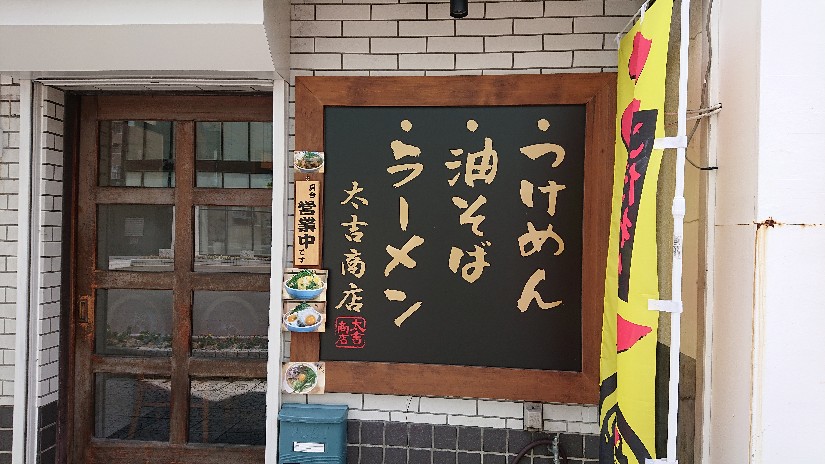 ・つけめん
・油そば
・ラーメン
太吉商店
太吉
商店
営業中
です